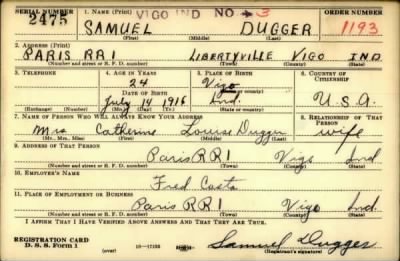 SERIAL NUMBER 1. NAME (Print) VIGO IND NO → 3 ORDER NUMBER
2475 SAMUEL DUGGER 1193
(First) (Middle) (Last)
2. ADDRESS (Print)
PARIS RR1 LIBERTYVILLE VIGO IND
(Number and street or R. F. D. number) (Town) (County) (State)
3. TELEPHONE 4. AGE IN YEARS 5. PLACE OF BIRTH 6. COUNTRY OF CITIZENSHIP
24 Vigo
DATE OF BIRTH (Town or county)
July 14 1916 Ind. U.S.A.
(Exchange) (Number) (Mo.) (Day) (Yr.) (State or country)
7. NAME OF PERSON WHO WILL ALWAYS KNOW YOUR ADDRESS 8. RELATIONSHIP OF THAT PERSON
Mrs Catherine Louise Dugger wife
(Mr., Mrs., Miss) (First) (Middle) (Last)
9. ADDRESS OF THAT PERSON
Paris RR1 Vigo Ind
(Number and street or R. F. D. number) (Town) (County) (State)
10. EMPLOYER'S NAME
Fred
11. PLACE OF EMPLOYMENT OR BUSINESS
Paris RR1 Vigo Ind.
(Number and street or R. F. D. number) (Town) (County) (State)
I AFFIRM THAT I HAVE VERIFIED ABOVE ANSWERS AND THAT THEY ARE TRUE.
REGISTRATION CARD
D. S. S. Form 1 (over) Samuel Dugger
(Registrant's signature)